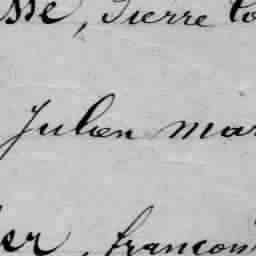 sse, Pierre Co
Julien mar
er, françois